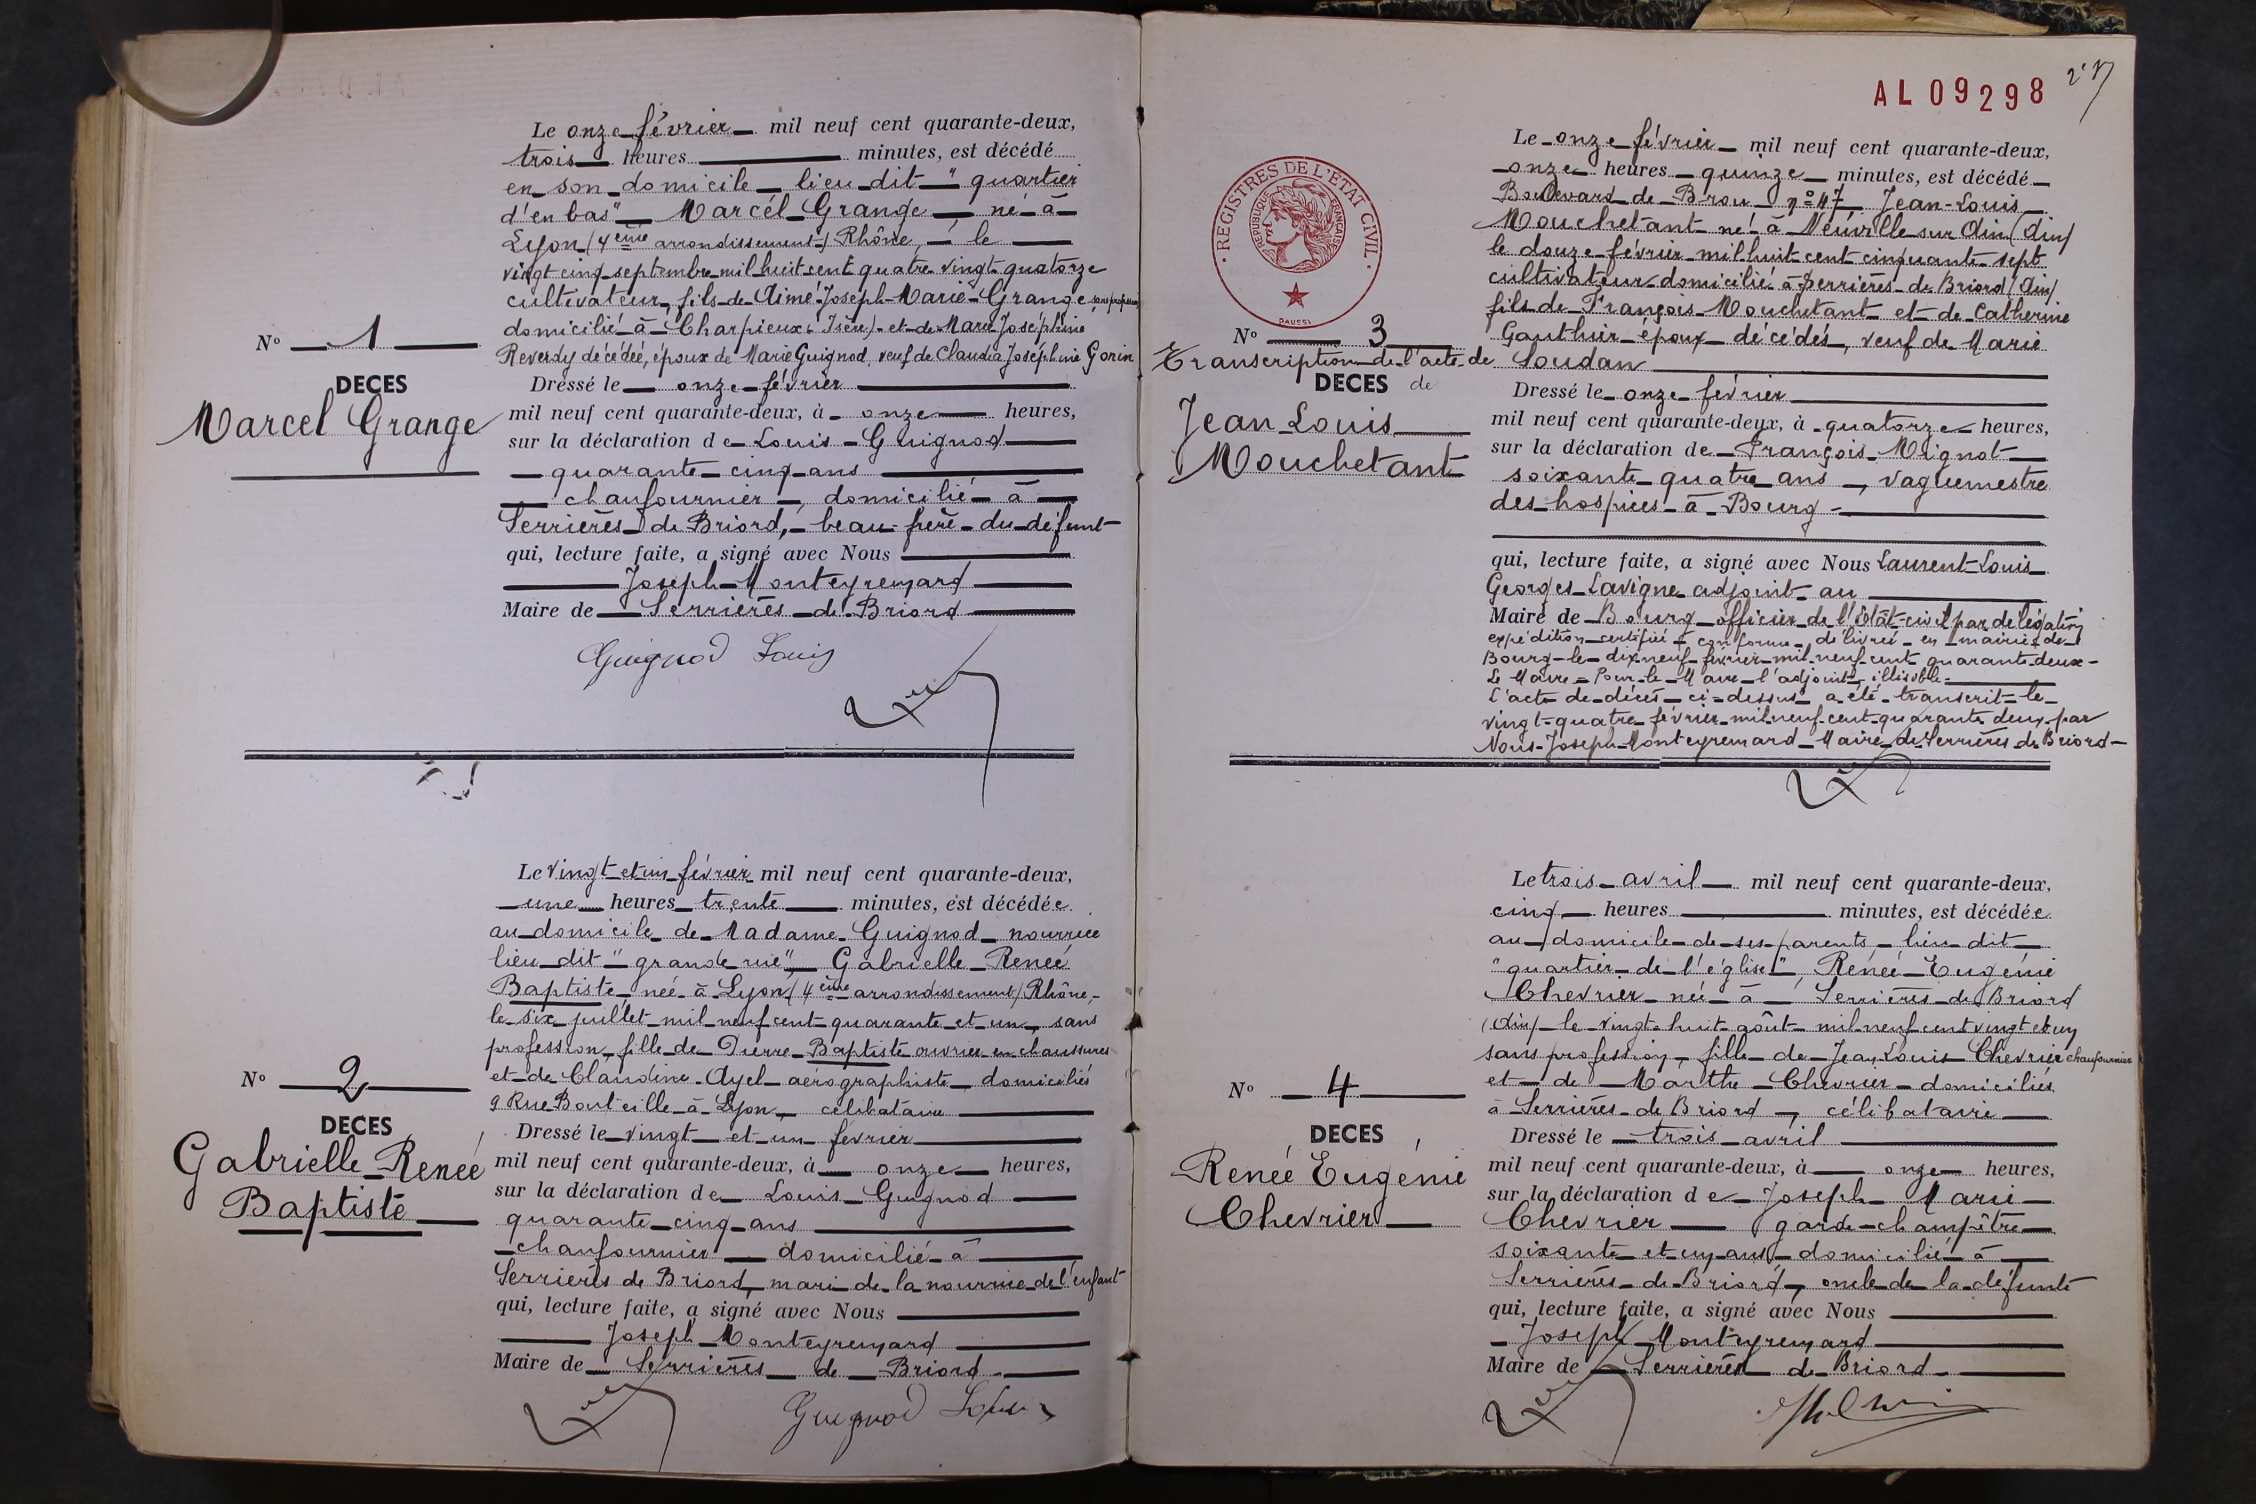 Le onze février mil neuf cent quarante-deux,
trois heures minutes, est décédé
en son domicile lieu dit "quartier
d'en bas" Marcél Grange, né à
Lyon (4ème arrondissement) Rhône, le
vingt cinq septembre mil huit cent quatre vingt quatorze
cultivateur, fils de Aimé Joseph Marie Grange sans profession
domicilié à Charpieux (Isère) et de Marie Joséphine
Reverdy décédée, époux de Marie Guignod veuf de Claudia Joséphine Gonin
N° 1
DECES
Marcel Grange
Dressé le onze février
mil neuf cent quarante-deux, à onze heures,
sur la déclaration de Louis Guignod
quarante cinq ans
chaufournier, domicilié à
Serrières de Briord, beau-frère du défunt
qui, lecture faite, a signé avec Nous
Joseph Monteyremard
Maire de Serrières de Briord
Guignod Louis
Le vingt et un février mil neuf cent quarante-deux,
une heures trente minutes, est décédée
au domicile de Madame Guignod nourrice
lieu dit "grande rue", Gabrielle Renée
Baptiste née à Lyon (4ème arrondissement) Rhône,
le six juillet mil neuf cent quarante et un, sans
profession, fille de Pierre Baptiste ouvrier en chaussures
et de Claudine Ayel aérographiste domiciliés
9 Rue Bouteille à Lyon, célibataire
N° 2
DECES
Gabrielle Renée
Baptiste
Dressé le vingt et un fevrier
mil neuf cent quarante-deux, à onze heures,
sur la déclaration de Louis Guignod
quarante cinq ans
chaufournier domicilié à
Serrières de Briord, mari de la nourrice de l'enfant
qui, lecture faite, a signé avec Nous
Joseph Monteyremard
Maire de Serrières de Briord
Guignod Louis
AL09298
REGISTRES DE L'ETAT CIVIL
REPUBLIQUE FRANÇAISE
DAUSSI
Le onze février mil neuf cent quarante-deux,
onze heures quinze minutes, est décédé
Boulevard de Brou n° 47 Jean-Louis
Mouchetant né à Neuville sur Ain (Ain)
le douze février mil huit cent cinquante sept
cultivateur domicilié à Serrières de Briord (Ain)
fils de François Mouchetant et de Catherine
Gauthier époux décédés, veuf de Marie
Soudan
N° 3
Transcription de l'acte de
DECES de
Jean Louis
Mouchetant
Dressé le onze février
mil neuf cent quarante-deux, à quatorze heures,
sur la déclaration de François Mignot
soixante quatre ans, vaguemestre
des hospices à Bourg
qui, lecture faite, a signé avec Nous Laurent Louis
Georges Lavigne adjoint au
Maire de Bourg officier de l'Etat-civil par délégation
expédition certifiée conforme délivrée en mairie de
Bourg le dix neuf février mil neuf cent quarante deux
Le Maire = Pour le Maire l'adjoint, illisible
L'acte de décès ci-dessus a été transcrit le
vingt-quatre février mil neuf cent quarante deux par
Nous Joseph Monteyremard Maire de Serrières de Briord
Le trois avril mil neuf cent quarante-deux,
cinq heures minutes, est décédée
au domicile de ses parents lieu dit
"quartier de l'église", Renée Eugénie
Chevrier née à Serrières de Briord
(Ain) le vingt huit août mil neuf cent vingt et un
sans profession, fille de Jean Louis Chevrier chaufournier
et de Marthe Chevrier domiciliés
à Serrières de Briord, célibataire
N° 4
DECES
Renée Eugénie
Chevrier
Dressé le trois avril
mil neuf cent quarante-deux, à onze heures,
sur la déclaration de Joseph Marie
Chevrier garde-champêtre
soixante et un ans domicilié à
Serrières de Briord, oncle de la défunte
qui, lecture faite, a signé avec Nous
Joseph Monteyremard
Maire de Serrières de Briord